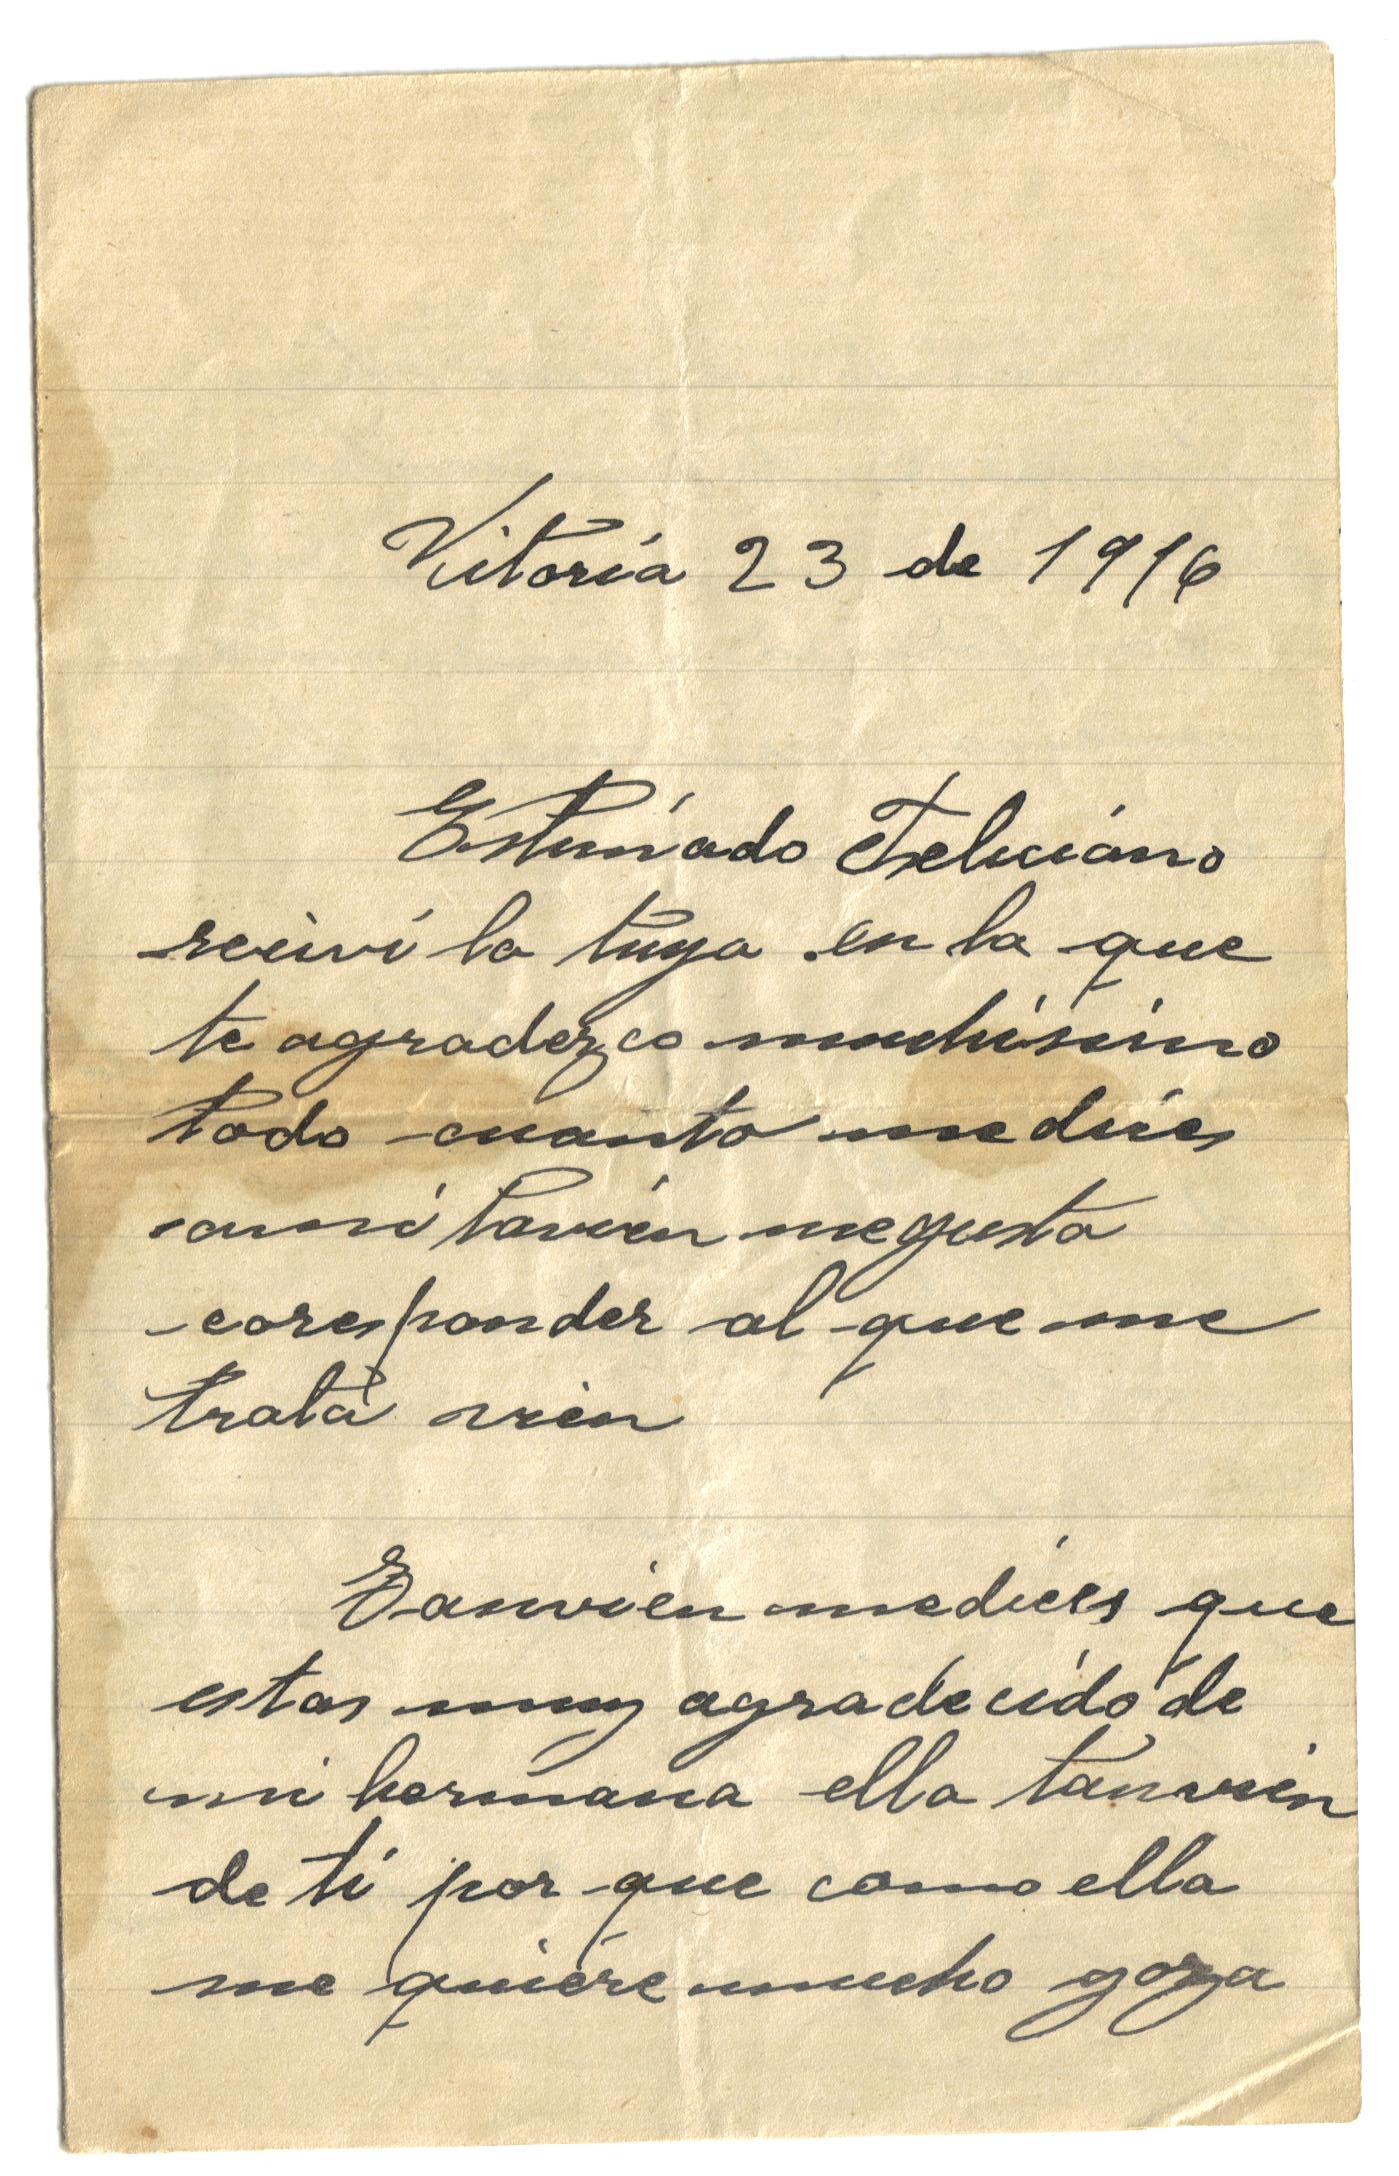 Vitoria 23 de 1916
Estimado Feliciano
recivi la tuya en la que
te agradezco muchisimo
todo cuanto me dices
a mi tavien me gusta
coresponder al que me
trata vien
Tanvien me dices que
estas muy agradecido de
mi hermana ella tanvien
de ti por que como ella
me quiere mucho goza